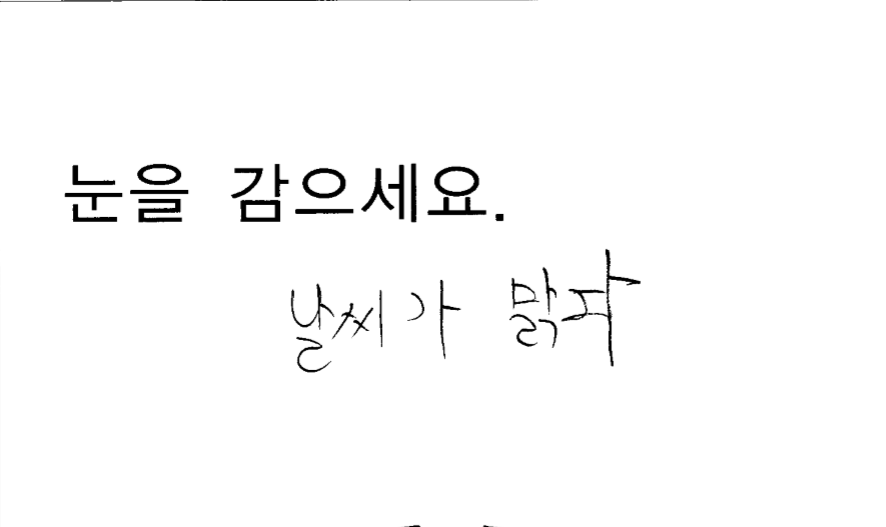 눈을 감으세요.
날씨가 맑다